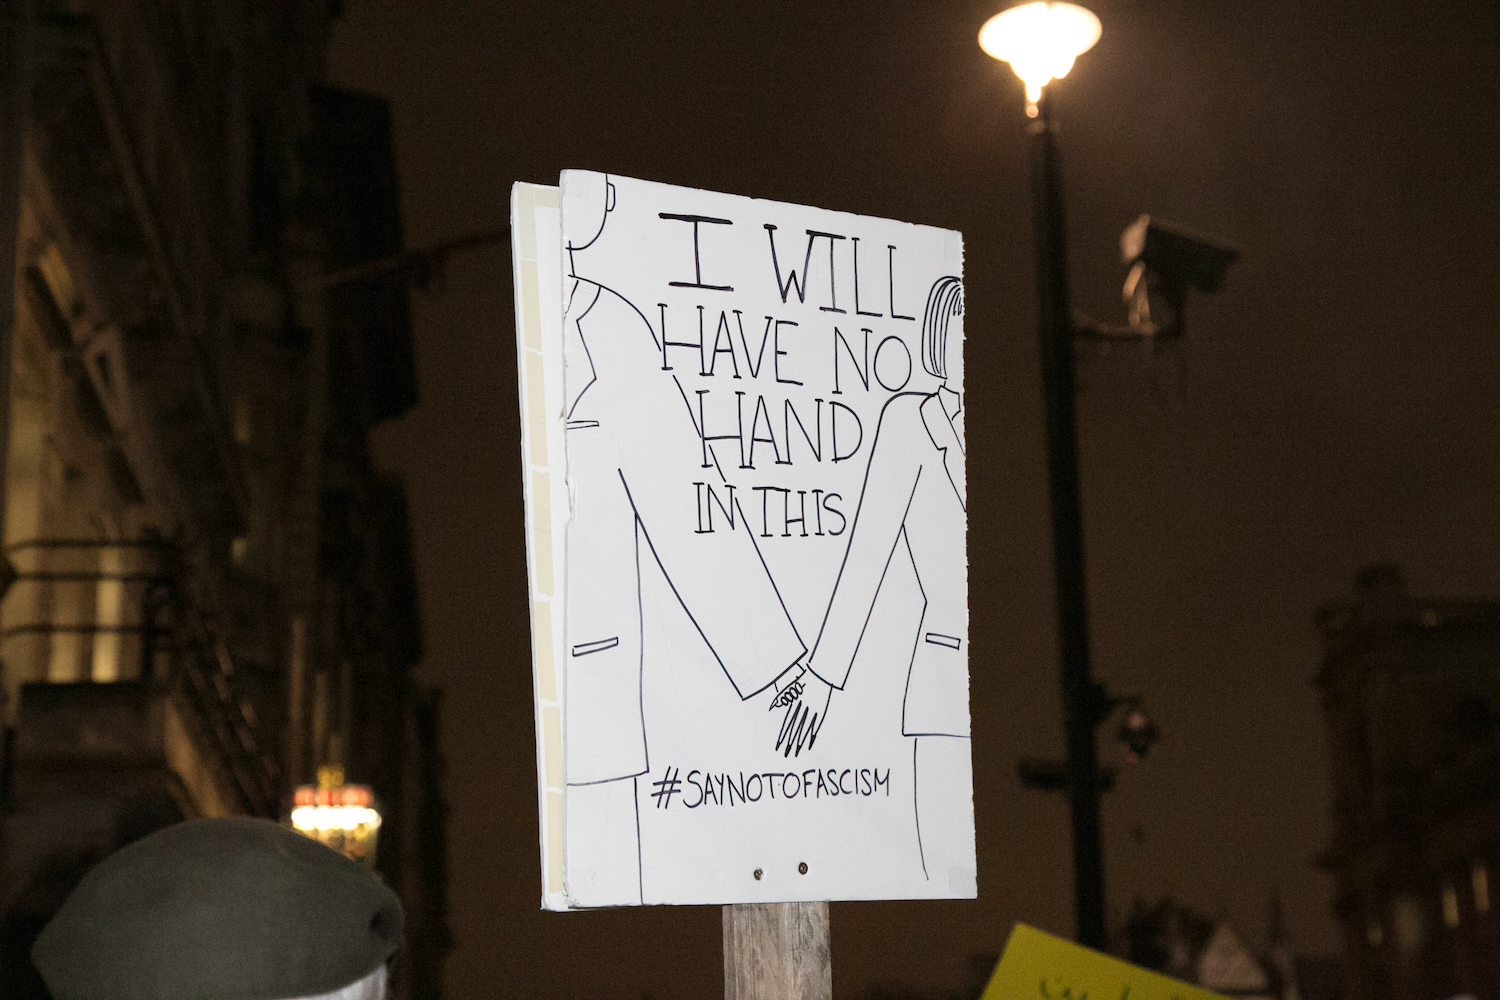 I WILL
HAVE NO
HAND
IN THIS
#SAYNOTOFASCISM